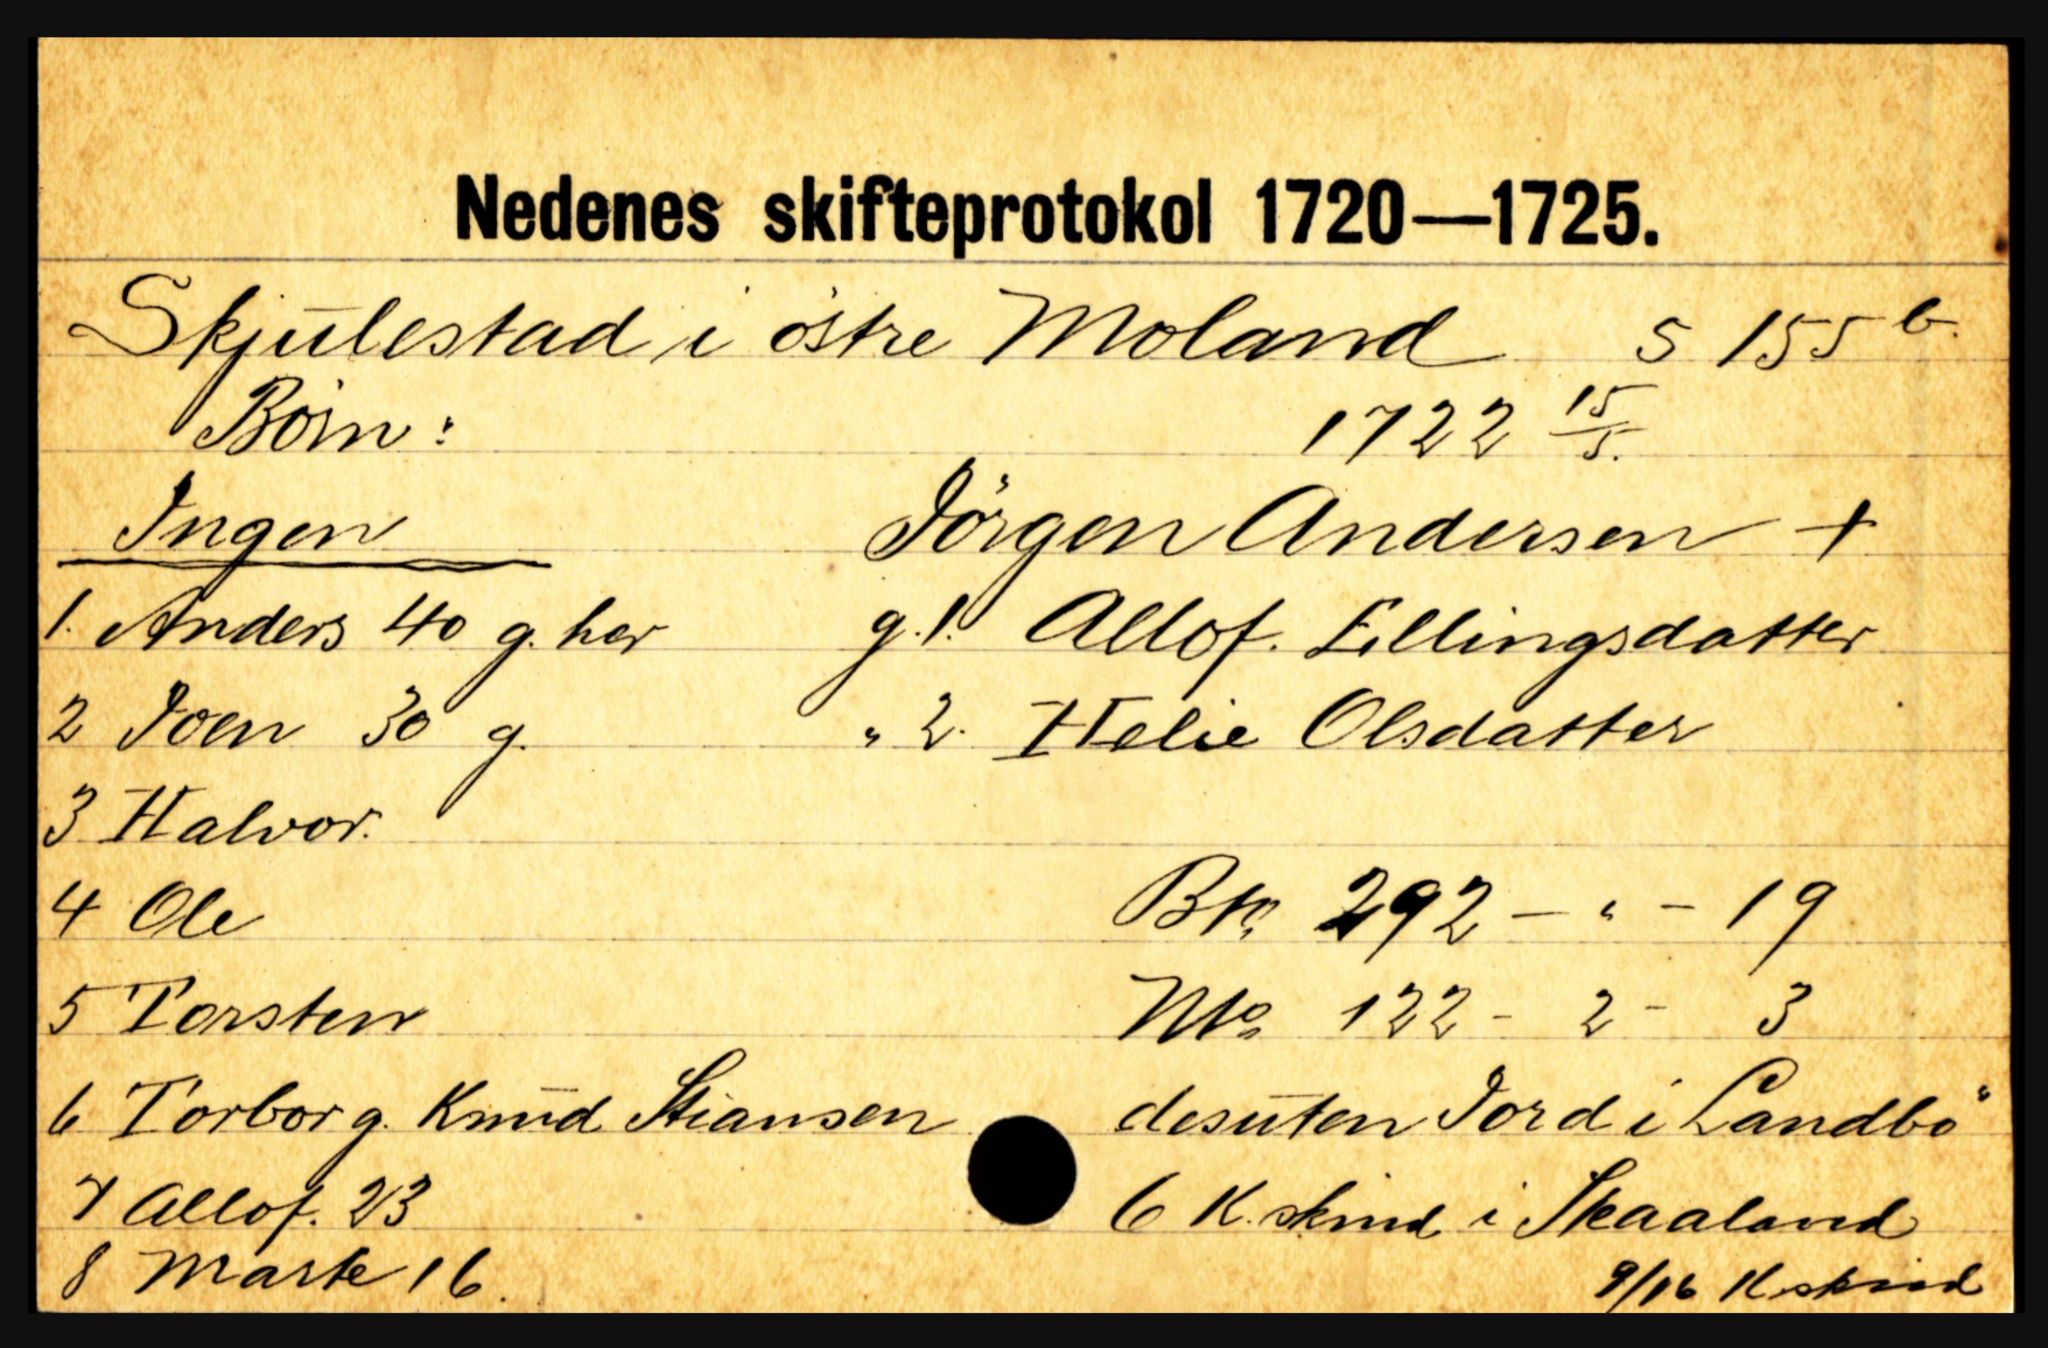 Nedenes skifteprotokol 1720—1725.
Skjulestad i östre Moland S 155 b.
Börn: 1722 15/5.
Ingen Jörgen Andersen +
1. Anders 40 g. her g. 1. Allof. Ellingsdatter
2 Joen 30 g. " 2. Helie Olsdatter
3 Halvor.
4 Ole Bto 292 - " - 19
5 Torsten Nto 122 - 2 - 3
6 Torbor g. Knud Stiansen desuten Jord i Landbö
7 Allof. 23 6 K. skind i Skaaland
8 Marte 16. 9/16 K. skind